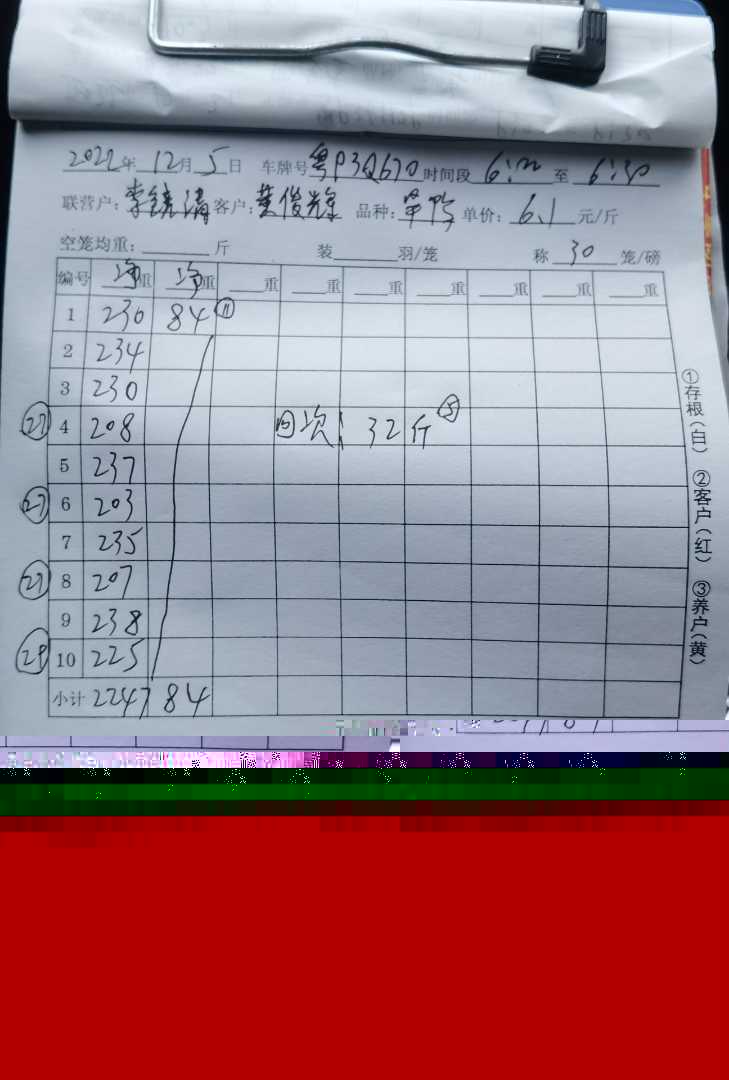 2022年 12月 5日 车牌号 粤P3Q670 时间段 6:00 至 6:30
联营户: 李镜清 客户: 黄俊辉 品种: 单价: 6.1 元/斤
空笼均重: 斤 装 羽/笼 称 30 笼/磅
编号 净重 净重 重 重 重 重 重 重 重
1 230 84 ⑪
2 234
3 230
㉗ 4 208 回次: 32斤 ⑤
5 237
㉗ 6 203
7 235
㉗ 8 207
9 238
㉙ 10 225
小计 2247 84
①存根(白) ②客户(红) ③养户(黄)